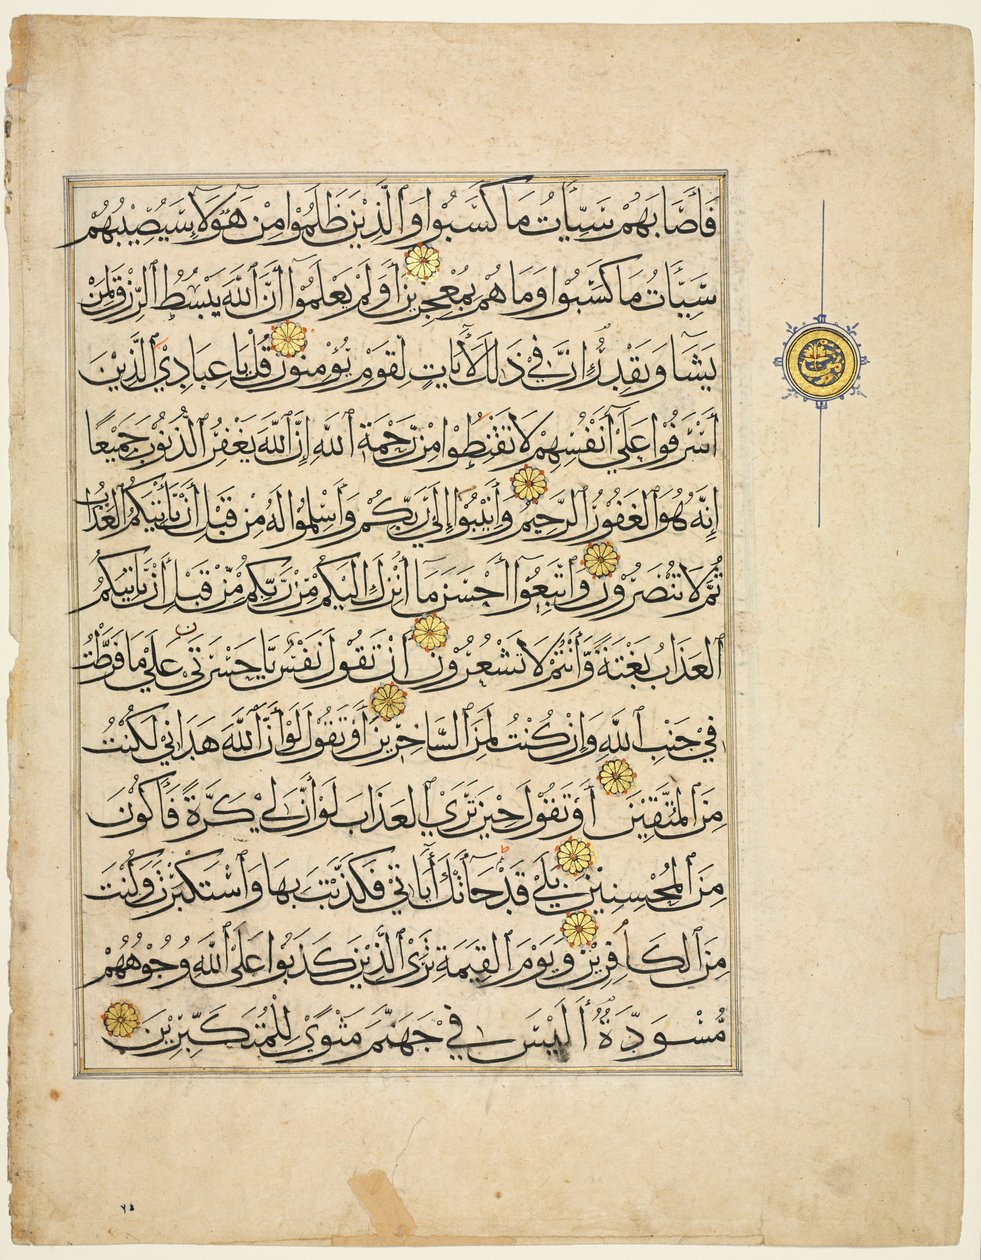 فَأَصَابَهُمْ سَيِّأَتُ مَا كَسَبُوا وَالَّذِينَ ظَلَمُوا مِنْ هَؤُلَاءِ سَيُصِيبُهُمْ
سَيِّأَتُ مَا كَسَبُوا وَمَا هُمْ بِمُعْجِزِينَ أَوَلَمْ يَعْلَمُوا أَنَّ اللَّهَ يَبْسُطُ الرِّزْقَ لِمَنْ
يَشَاءُ وَيَقْدِرُ إِنَّ فِي ذَلِكَ لَآيَاتٍ لِقَوْمٍ يُؤْمِنُونَ قُلْ يَا عِبَادِيَ الَّذِينَ
أَسْرَفُوا عَلَى أَنْفُسِهِمْ لَا تَقْنَطُوا مِنْ رَحْمَةِ اللَّهِ إِنَّ اللَّهَ يَغْفِرُ الذُّنُوبَ جَمِيعًا
إِنَّهُ هُوَ الْغَفُورُ الرَّحِيمُ وَأَنِيبُوا إِلَى رَبِّكُمْ وَأَسْلِمُوا لَهُ مِنْ قَبْلِ أَنْ يَأْتِيَكُمُ الْعَذَابُ
ثُمَّ لَا تُنْصَرُونَ وَاتَّبِعُوا أَحْسَنَ مَا أُنْزِلَ إِلَيْكُمْ مِنْ رَبِّكُمْ مِنْ قَبْلِ أَنْ يَأْتِيَكُمُ
الْعَذَابُ بَغْتَةً وَأَنْتُمْ لَا تَشْعُرُونَ أَنْ تَقُولَ نَفْسٌ يَا حَسْرَتَى عَلَى مَا فَرَّطْتُ
فِي جَنْبِ اللَّهِ وَإِنْ كُنْتُ لَمِنَ السَّاخِرِينَ أَوْ تَقُولَ لَوْ أَنَّ اللَّهَ هَدَانِي لَكُنْتُ
مِنَ الْمُتَّقِينَ أَوْ تَقُولَ حِينَ تَرَى الْعَذَابَ لَوْ أَنَّ لِي كَرَّةً فَأَكُونَ
مِنَ الْمُحْسِنِينَ بَلَى قَدْ جَاءَتْكَ آيَاتِي فَكَذَّبْتَ بِهَا وَاسْتَكْبَرْتَ وَكُنْتَ
مِنَ الْكَافِرِينَ وَيَوْمَ الْقِيَمَةِ تَرَى الَّذِينَ كَذَبُوا عَلَى اللَّهِ وُجُوهُهُمْ
مُسْوَدَّةٌ أَلَيْسَ فِي جَهَنَّمَ مَثْوًى لِلْمُتَكَبِّرِينَ